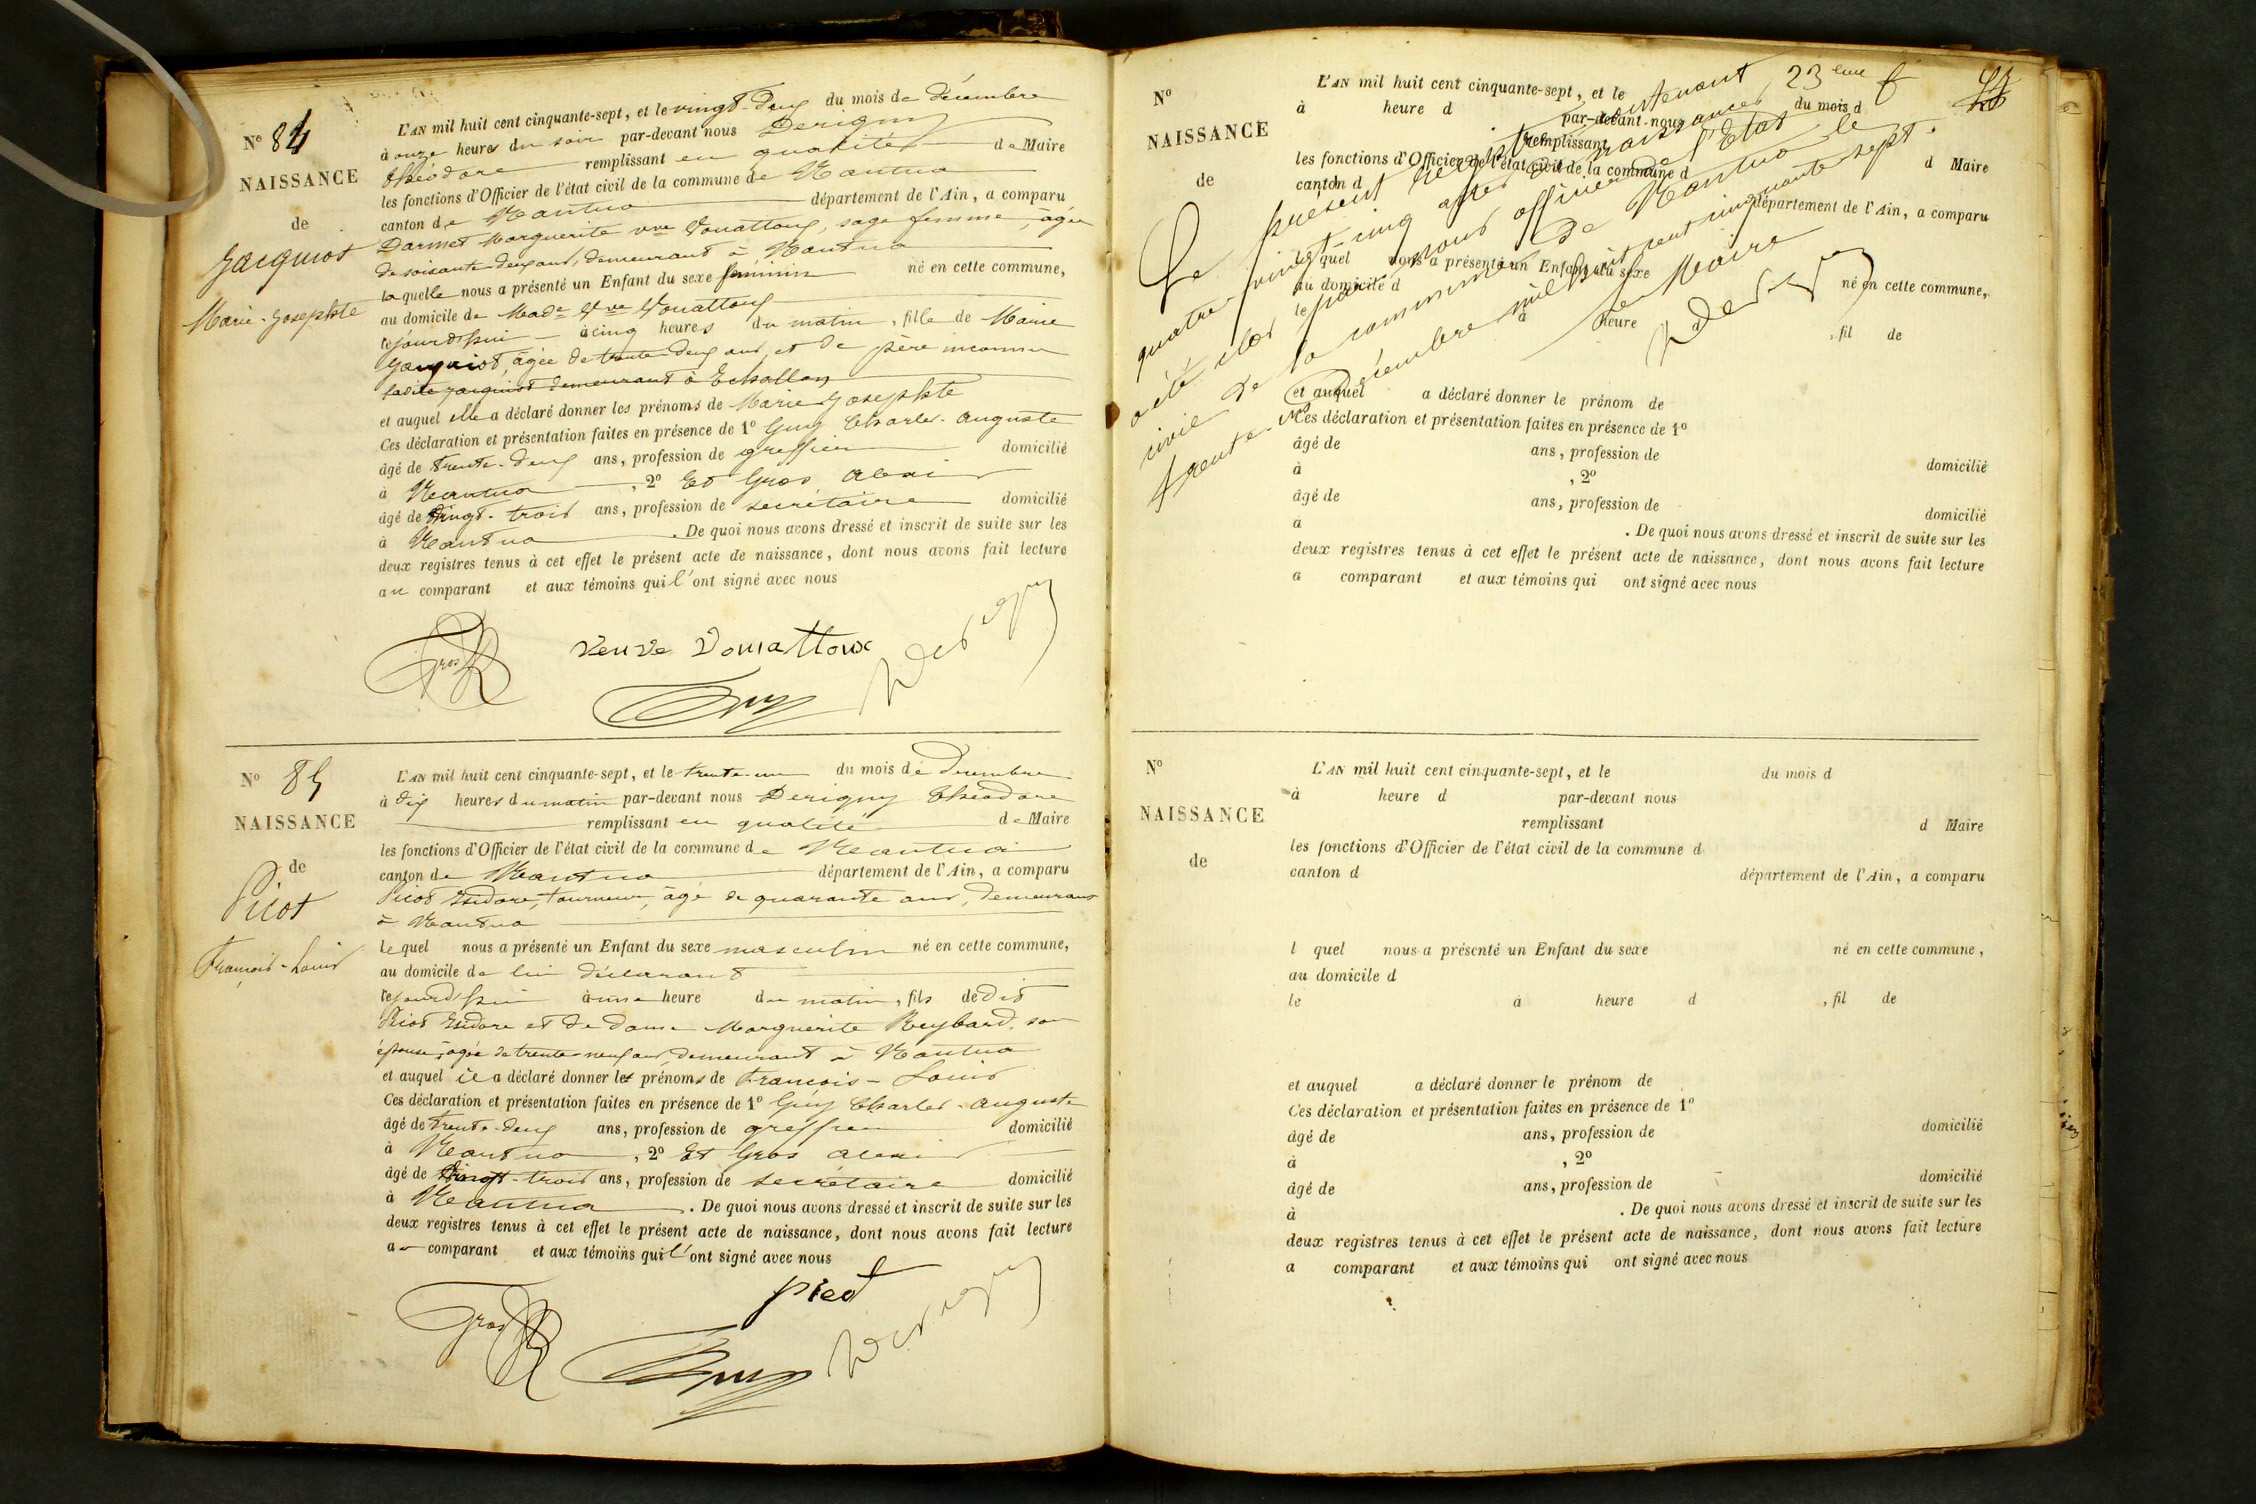 N° 84
NAISSANCE
de
Jacquiot
Marie-Josephte
L'AN mil huit cent cinquante-sept, et le vingt-deux du mois de décembre
à onze heures du soir par-devant nous Derigny
Théodore remplissant en qualité de Maire
les fonctions d'Officier de l'état civil de la commune de Nantua
canton de Nantua département de l'Ain, a comparu
Darmet Marguerite vve Vouattoux, sage femme, âgée
de soixante deux ans, demeurant à Nantua
laquelle nous a présenté un Enfant du sexe féminin né en cette commune,
au domicile de Made Vve Vouattoux
le jourd'hui à cinq heures du matin, fille de Marie
Jacquiot, âgée de trente-deux ans, et de père inconnu
ladite Jacquiot demeurant à Echallon
et auquel elle a déclaré donner les prénoms de Marie Josephte
Ces déclaration et présentation faites en présence de 1° Guy Charles-Auguste
âgé de trente-deux ans, profession de greffier domicilié
à Nantua, 2° Et Gros Alexis
âgé de vingt-trois ans, profession de secrétaire domicilié
à Nantua. De quoi nous avons dressé et inscrit de suite sur les
deux registres tenus à cet effet le présent acte de naissance, dont nous avons fait lecture
au comparant et aux témoins qui l'ont signé avec nous
Gros Veuve Vouattoux Derigny
Guy
N° 85
NAISSANCE
de
Picot
François-Louis
L'AN mil huit cent cinquante-sept, et le trente-un du mois de Décembre
à dix heures du matin par-devant nous Derigny Théodore
remplissant en qualité de Maire
les fonctions d'Officier de l'état civil de la commune de Nantua
canton de Nantua département de l'Ain, a comparu
Picot Isidore, tourneur, âgé de quarante ans, demeurant
à Nantua
lequel nous a présenté un Enfant du sexe masculin né en cette commune,
au domicile de lui déclarant
le jourd'hui à une heure du matin, fils de dit
Picot Isidore et de dame Marguerite Reybard, son
épouse, âgée de trente-neuf ans, demeurant à Nantua
et auquel il a déclaré donner les prénoms de François-Louis
Ces déclaration et présentation faites en présence de 1° Guy Charles-Auguste
âgé de trente-deux ans, profession de greffier domicilié
à Nantua, 2° Et Gros Alexis
âgé de vingt-trois ans, profession de secrétaire domicilié
à Nantua. De quoi nous avons dressé et inscrit de suite sur les
deux registres tenus à cet effet le présent acte de naissance, dont nous avons fait lecture
au comparant et aux témoins qui l'ont signé avec nous
Picot
Gros Guy Derigny
23eme f
Le présent Registre contenant
quatre vingt-cinq actes de naissances a
été clos par nous officier de l'Etat
civil de la commune de Nantua le
trente-un Décembre mil huit cent cinquante-sept.
Le Maire
Derigny
N°
NAISSANCE
de
L'AN mil huit cent cinquante-sept, et le du mois d
à heure d par-devant nous
remplissant d Maire
les fonctions d'Officier de l'état civil de la commune d
canton d département de l'Ain, a comparu
l quel nous a présenté un Enfant du sexe né en cette commune,
au domicile d
le à heure d , fil de
et auquel a déclaré donner le prénom de
Ces déclaration et présentation faites en présence de 1°
âgé de ans, profession de domicilié
à , 2°
âgé de ans, profession de domicilié
à . De quoi nous avons dressé et inscrit de suite sur les
deux registres tenus à cet effet le présent acte de naissance, dont nous avons fait lecture
a comparant et aux témoins qui ont signé avec nous
N°
NAISSANCE
de
L'AN mil huit cent cinquante-sept, et le du mois d
à heure d par-devant nous
remplissant d Maire
les fonctions d'Officier de l'état civil de la commune d
canton d département de l'Ain, a comparu
l quel nous a présenté un Enfant du sexe né en cette commune,
au domicile d
le à heure d , fil de
et auquel a déclaré donner le prénom de
Ces déclaration et présentation faites en présence de 1°
âgé de ans, profession de domicilié
à , 2°
âgé de ans, profession de domicilié
à . De quoi nous avons dressé et inscrit de suite sur les
deux registres tenus à cet effet le présent acte de naissance, dont nous avons fait lecture
a comparant et aux témoins qui ont signé avec nous